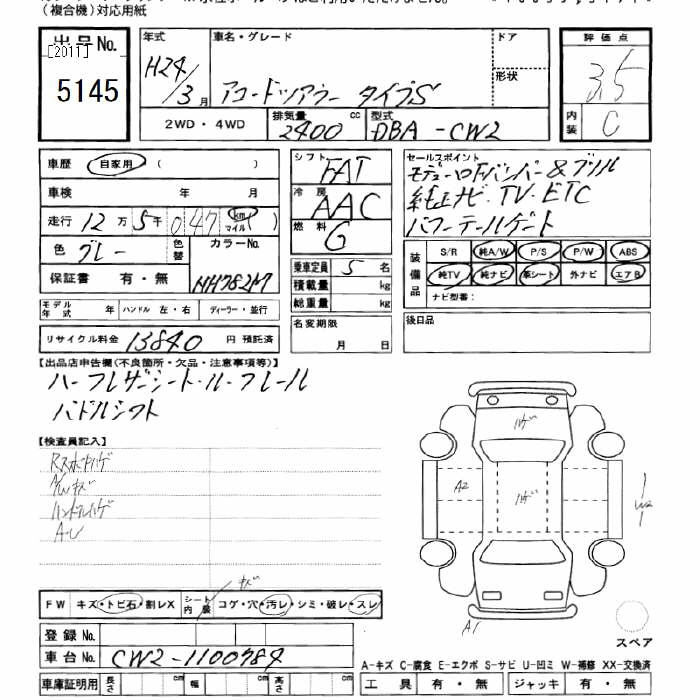 （複合機）対応用紙
出品No.
[2011]
5145
年式
H24/3月
車名・グレード
アコードツアラー タイプS
ドア
形状
評価点
3.5
内装
C
2WD・4WD
排気量
2400
cc
型式
DBA-CW2
車歴
自家用 ( )
車検 年 月
走行 12万5千047 km マイル
色 グレー
色替
カラーNo.
NH782M
保証書 有・無
シフト
FAT
冷房
AAC
燃料
G
乗車定員 5 名
積載量 kg
総重量 kg
セールスポイント
モデューロFバンパー&グリル
純正ナビ・TV・ETC
パワーテールゲート
装備品
S/R 純A/W P/S P/W ABS
純TV 純ナビ 革シート 外ナビ エアB
ナビ型番：
モデル年式 年
ハンドル 左・右
ディーラー・並行
リサイクル料金 13840 円 預託済
名変期限
月 日
後日品
【出品店申告欄（不良箇所・欠品・注意事項等）】
ハーフレザーシート・ルーフレール
パドルシフト
【検査員記入】
A/Wキズ
ハンドルハゲ
ハゲ
A2
ハゲ
W2
A1
FW キズ・トビ石・割レX
シート内装 コゲ・穴・汚レ・シミ・破レ・スレ
登録No.
車台No. CW2-1100784
車庫証明用 長さ cm 幅 cm 高さ cm
スペア
A-キズ C-腐食 E-エクボ S-サビ U-凹ミ W-補修 XX-交換済
工具 有・無 ジャッキ 有・無